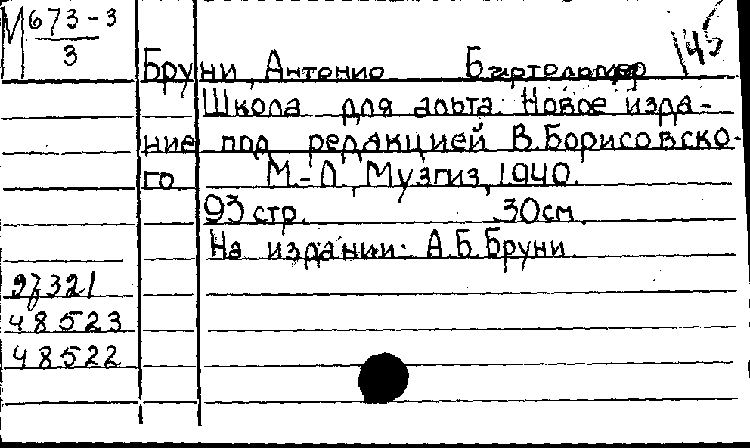 М 673-3
3
145
Бруни, Антонио Бартоломео
Школа для альта. Новое изда-
ние под редакцией В.Борисовско-
го М.-Л., Музгиз, 1940.
93 стр. 30см.
На издании: А.Б.Бруни.
48523
48522